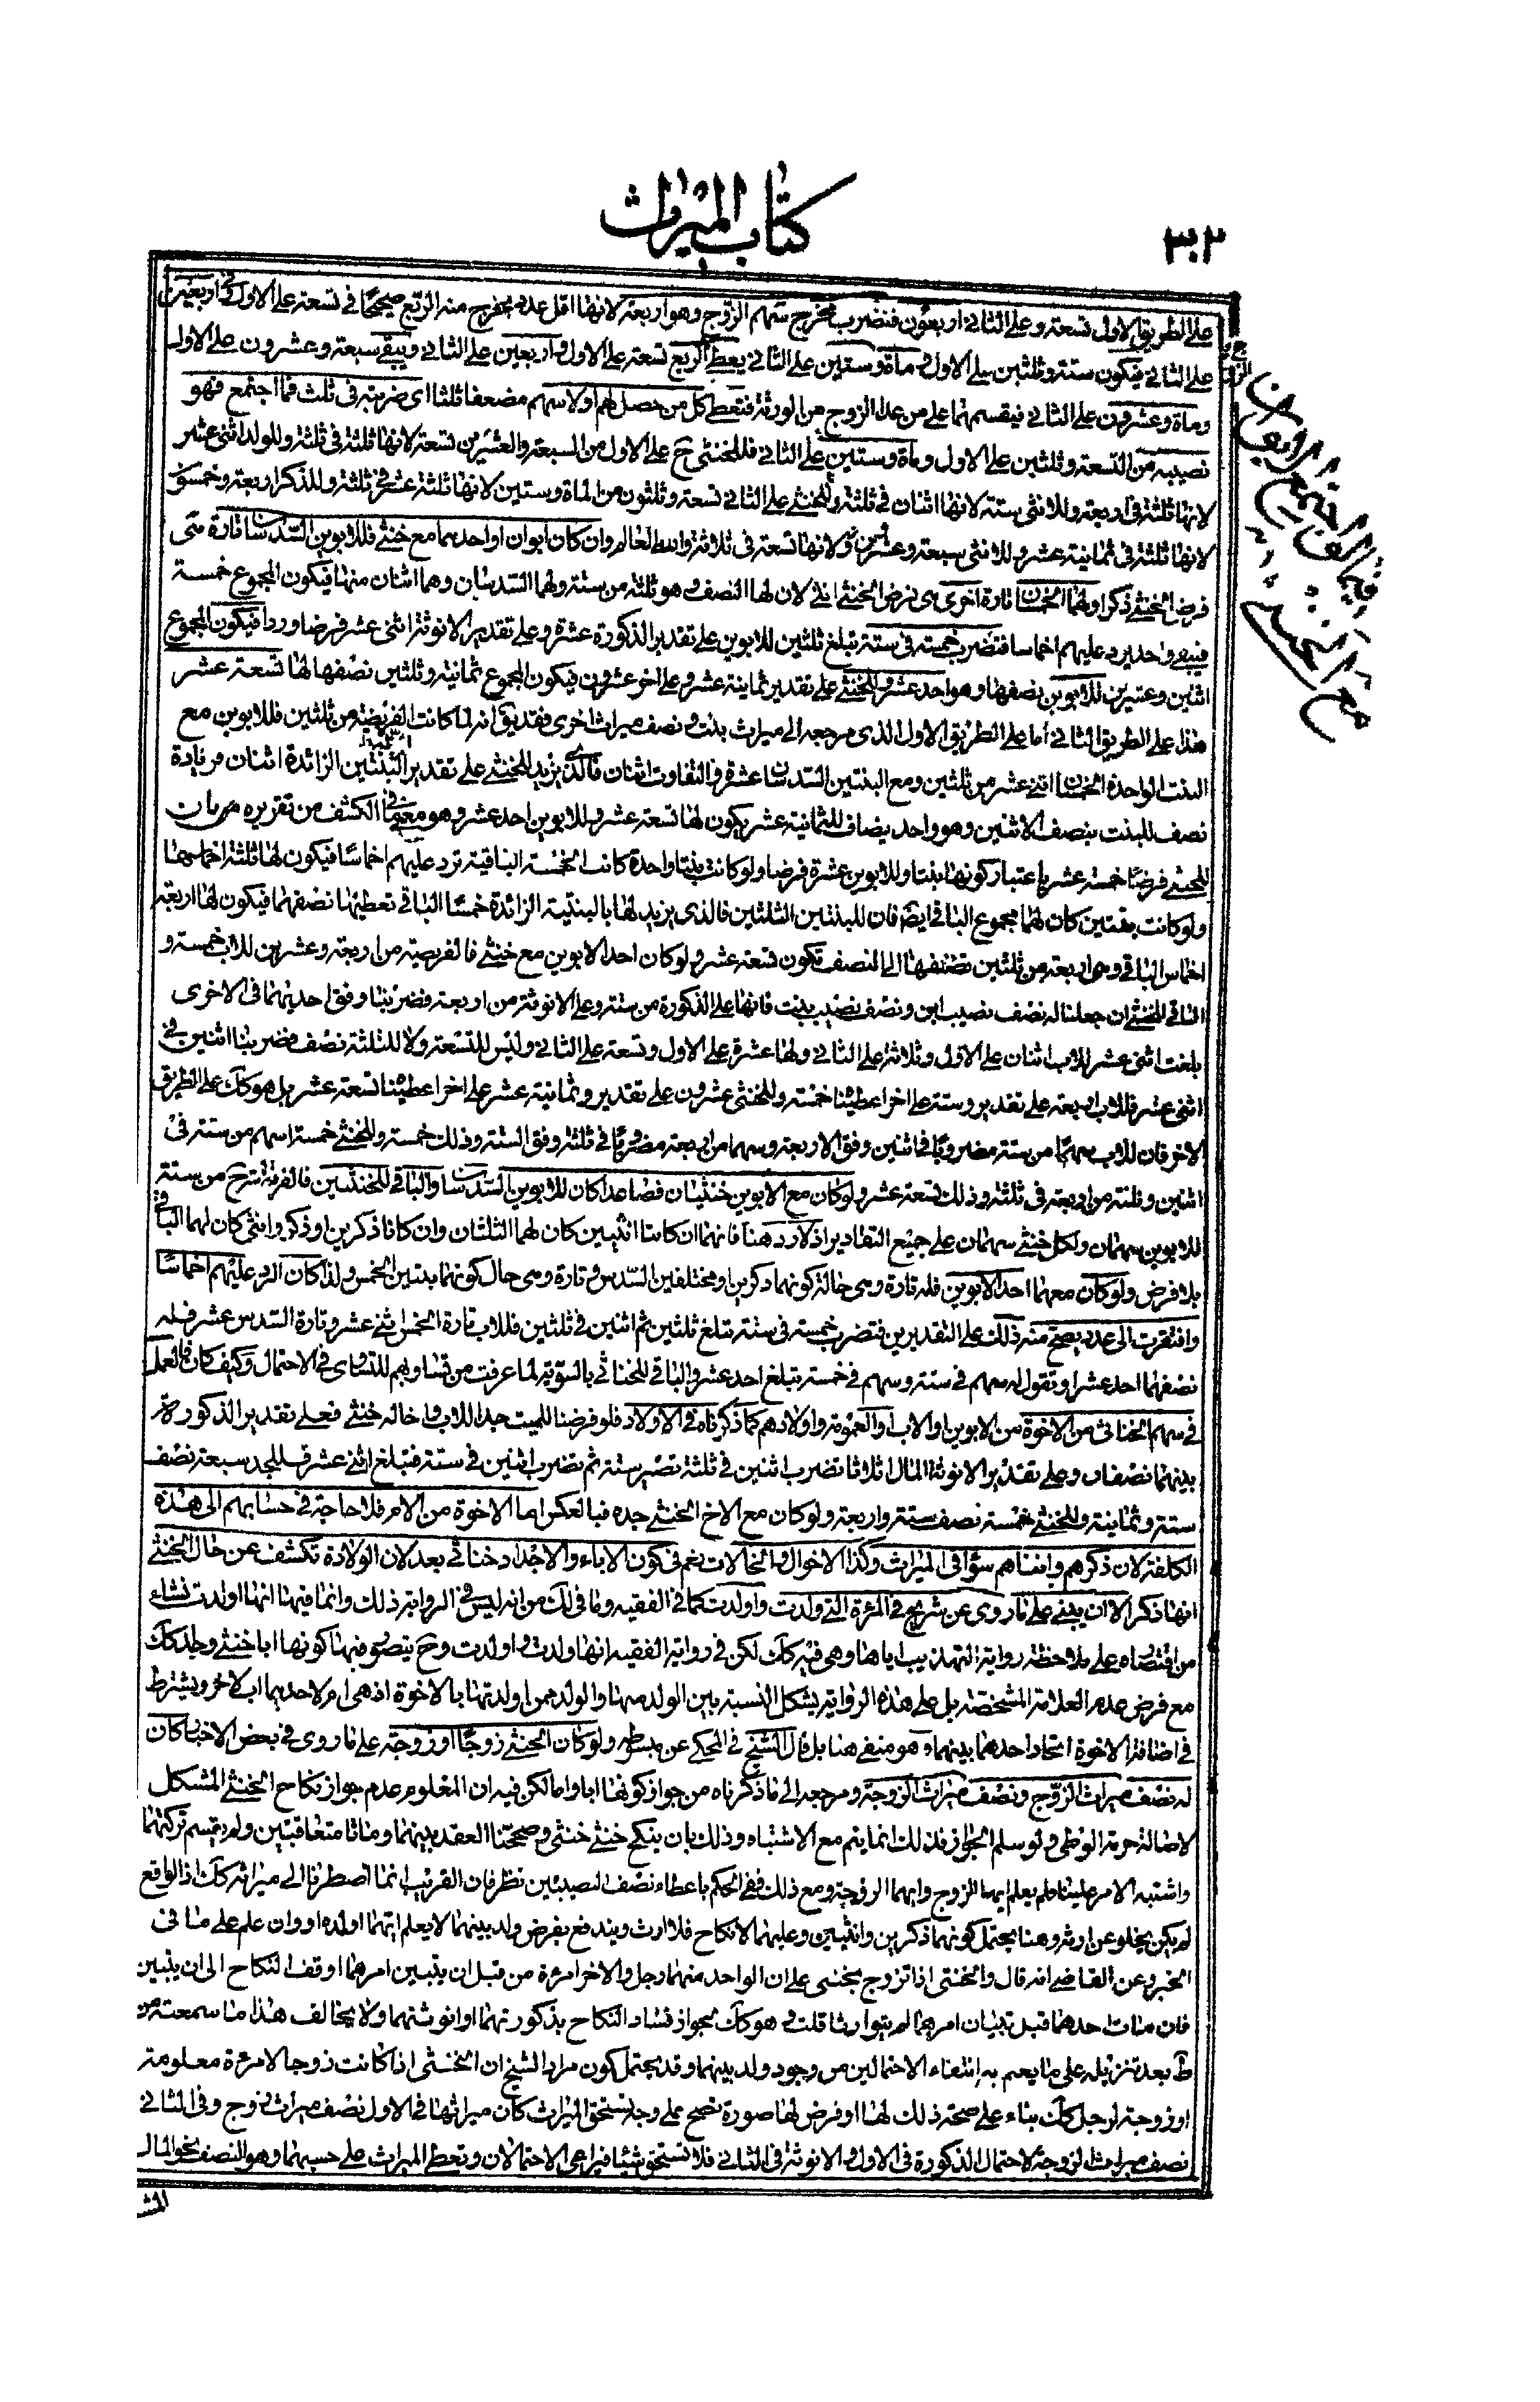 ٣٠٢
كتاب الميراث
على الطريق الاول تسعة وعلى الثاني اربعون فتضرب مخرج سهم الزوج وهو اربعة لانها اقل عدد يخرج منه الربع صحيحا في تسعة على الاول وفي اربعين
على الثاني فيكون ستة وثلثين على الاول وماة وستين على الثاني يعطى الربع تسعة على الاول واربعين على الثاني ويبقى سبعة وعشرون على الاول
وماة وعشرون على الثاني فيقسم على من عدا الزوج من الورثة فتعطى كل من حصل لهم اولا سهم مضعفا ثلثا اى ضربته في ثلث فما اجتمع فهو
نصيبه من التسعة وثلثين على الاول وماة وستين على الثاني فللخنثى ح على الاول من السبعة والعشرين تسعة لانها ثلثة في ثلثة وللولد اثنى عشر
لانها ثلثة في اربعة وللانثى ستة لانها اثنان في ثلثة وللخنثى على الثاني تسعة وثلثون من الماة وستين لانها ثلثة عشر في ثلثة وللذكر اربعة وخمسون
لانها ثلثة في ثمانية عشر وللانثى سبعة وعشرون لانها تسعة في ثلاثة والله العالم وان كان ابوان او احدهما مع خنثى فللابوين السدسان تارة متى
فرض الخنثى ذكرا ولهما الخمسان تارة اخرى متى فرض الخنثى انثى لان لها النصف وهو ثلثة من ستة ولهما السدسان وهما اثنان منها فيكون المجموع خمسة
فيبقى واحد يرد عليهم اخماسا فتضرب خمسة في ستة تبلغ ثلثين للابوين على تقدير الذكورة عشرة وعلى تقدير الانوثة اثنى عشر فرضا وردا فيكون المجموع
اثنين وعشرين للابوين نصفها وهو واحد عشر وللخنثى على تقدير ثمانية عشر وعلى اخر عشرون فيكون المجموع ثمانية وثلثين نصفها لها تسعة عشر
هذا على الطريق الثاني أما على الطريق الاول الذى مرجعه الى ميراث بنت ونصف ميراث اخرى فقد يق انه لما كانت الفريضة من ثلثين فللابوين مع
البنت الواحدة الخمسان اثنى عشر من ثلثين ومع البنتين السدسان عشرة والتفاوت اثنان فالذى يزيد للخنثى على تقدير البنتين الزائدة اثنان فزيادة
نصف للبنت بنصف الاثنين وهو واحد يضاف للثمانية عشر يكون لها تسعة عشر وللابوين احد عشر وهو معنى ما في الكشف من تقريره من ان
للخنثى فرضا خمسة عشر باعتبار كونها بنتا وللابوين عشرة فرضا ولو كانت بنتا واحدة كانت الخمسة الباقية ترد عليهم اخماسا فيكون لها ثلثة اخماسها
ولو كانت بنتين كان لهما مجموع الباقي ايضا فان للبنتين الثلثين فالذى يزيد لها بالبنتية الزائدة خمسا الباقي نعطيها نصفهما فيكون لها اربعة
اخماس الباقي وهى اربعة من ثلثين تضيفها الى النصف تكون تسعة عشر ولو كان احد الابوين مع خنثى فالفريضة من اربعة وعشرين للاب خمسة و
الباقي للخنثى ان جعلنا له نصف نصيب ابن ونصف نصيب بنت فانها على الذكورة من ستة وعلى الانوثة من اربعة فضربنا وفق احديهما في الاخرى
بلغت اثنى عشر للاب اثنان على الاول وثلاثة على الثاني ولها عشرة على الاول وتسعة على الثاني وليس للتسعة ولا للثلثة نصف فضربنا اثنين في
اثنى عشر فللاب اربعة على تقدير وستة على اخر اعطيناه خمسة وللخنثى عشرون على تقدير وثمانية عشر على اخر اعطيناه تسعة عشر بل هو كك على الطريق
الاخر فان للاب سهما من ستة مضروبا في اثنين وفق الاربعة وسهما من اربعة مضروبا في ثلثة وفق الستة وذلك خمسة وللخنثى خمسة اسهم من ستة في
اثنين وثلثة من اربعة في ثلثة وذلك تسعة عشر ولو كان مع الابوين خنثيان فصاعدا كان للابوين السدسان والباقي للخنثيين فالفريضة ح من ستة
للابوين سهمان ولكل خنثى سهمان على جميع التقادير اذ لا رد هنا فانهما ان كانتا انثيين كان لهما الثلثان وان كانا ذكرين او ذكر وانثى كان لهما الباقي
بلا فرض ولو كان معهما احد الابوين فله تارة وهى حالة كونهما ذكرين او مختلفين السدس وتارة وهى حال كونهما بنتين الخمس ولذا كان الرد عليهم اخماسا
وافتقرت الى عدد يصح منه ذلك على التقديرين فتضرب خمسة في ستة تبلغ ثلثين ثم اثنين في ثلثين فللاب تارة الخمس اثنى عشر وتارة السدس عشر فله
نصفهما احد عشر او تقول له سهم في ستة وسهم في خمسة تبلغ احد عشر والباقي للخناثى بالسوية لما عرفت من تساويهم للتساوى في الاحتمال وكيف كان فالعمل
في سهم الخناثى من الاخوة من الابوين او الاب او العمومة واولادهم كما ذكرناه في الاولاد فلو فرضنا للميت جد اللاب واخا له خنثى فعلى تقدير الذكورة
بينهما نصفان وعلى تقدير الانوثة المال اثلاثا تضرب اثنين في ثلثة تصير ستة ثم تضرب اثنين في ستة فتبلغ اثنى عشر فللجد سبعة نصف
ستة وثمانية وللخنثى خمسة نصف ستة واربعة ولو كان مع الاخ الخنثى جدة فبالعكس اما الاخوة من الام فلا حاجة في حسابهم الى هذه
الكلفة لان ذكرهم وانثاهم سواء في الميراث وكذا الاخوال والخالات نعم في كون الاباء والاجداد خناثى بعد لان الولادة تكشف عن حال الخنثى
انها ذكر الا ان يبنى على ما روى عن شريح في المرئة التى ولدت واولدت كما في الفقيه وما في لك من انه ليس في الرواية ذلك وانما فيها انها اولدت نشاء
من اقتصاره على ملاحظة رواية التهذيب اياها وهى فيه كك لكن في رواية الفقيه انها ولدت واولدت وح يتصور فيها كونها ابا خنثى وجدا كك
مع فرض عدم العلامة المشخصة بل على هذه الرواية يشكل النسبة بين الولد منها والولد ممن اولدتها بالاخوة اذ هى ام لاحدهما اب لاخر ويشترط
في اضافة الاخوة اتحاد احدهما بينهما وهو منفى هنا بل قال الشيخ في المحكى عن مبسوطه ولو كان الخنثى زوجا او زوجة على ما روى في بعض الاخبار كان
له نصف ميراث الزوج ونصف ميراث الزوجة ومرجعه الى ما ذكرناه من جواز كونها ابا واما لكن فيه ان المعلوم عدم جواز نكاح الخنثى المشكل
لاصالة حرمة الوطى ولو سلم الجواز فذلك انما يتم مع الاشتباه وذلك بان ينكح خنثى خنثى وصححنا العقد بينهما وماتا متعاقبين ولم يقسم تركتهما
واشتبه الامر علينا فلم يعلم ايهما الزوج وايهما الزوجة ومع ذلك ففى الحكم باعطاء نصف النصيبين نظر فان القريب انما اضطرنا الى ميراثه كك اذ الواقع
لم يكن يخلو عن ارثه وهنا يحتمل كونهما ذكرين وانثيين وعليهما لا نكاح فلا ارث ويندفع بفرض ولد بينهما لا يعلم ايهما اولده او وان علم على ما في
الخبر وعن القاضى انه قال والخنثى اذا تزوج بخنثى على ان الواحد منهما رجل والاخر امرئة من قبل ان يتبين امرهما اوقف النكاح الى ان يتبين
فان مات احدهما قبل تبيان امرهما لم يتوارثا قلت وهو كك لجواز فساد النكاح بذكورتهما او انوثتهما ولا يخالف هذا ما سمعته من
ط بعد تنزيله على ما يعم به انتفاء الاحتمالين من وجود ولد بينهما وقد يحتمل كون مراد الشيخ ان الخنثى اذا كانت زوجا لامرئة معلومة
او زوجة لرجل كك بناء على صحة ذلك لها او فرض لها صورة تصح على وجه تستحق الميراث كان ميراثها في الاول نصف ميراث زوج وفي الثاني
نصف ميراث الزوجة لاحتمال الذكورة في الاول والانوثة في الثاني فلا تستحق شيئا فيراعى الاحتمالان وتعطى الميراث على حسبهما وهو النصف نحو المال
فيما لو اجتمع الابوان
مع الخنثى